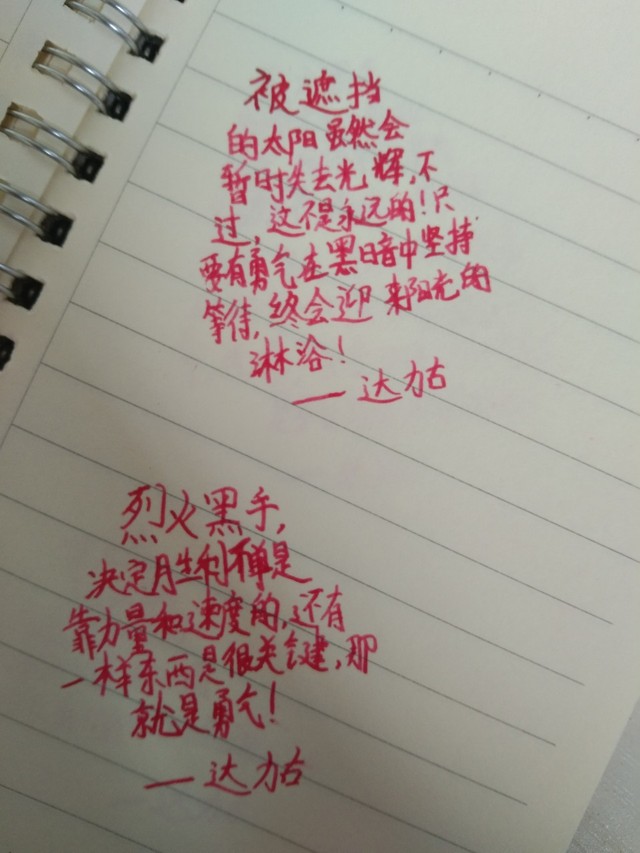 被遮挡
的太阳虽然会
暂时失去光辉,不
过,这不是永远的!只
要有勇气在黑暗中坚持
等待,终会迎来阳光的
淋浴!
— 达力古
烈火黑手,
决定胜利不单是
靠力量和速度的,还有
一样东西是很关键,那
就是勇气!
— 达力古